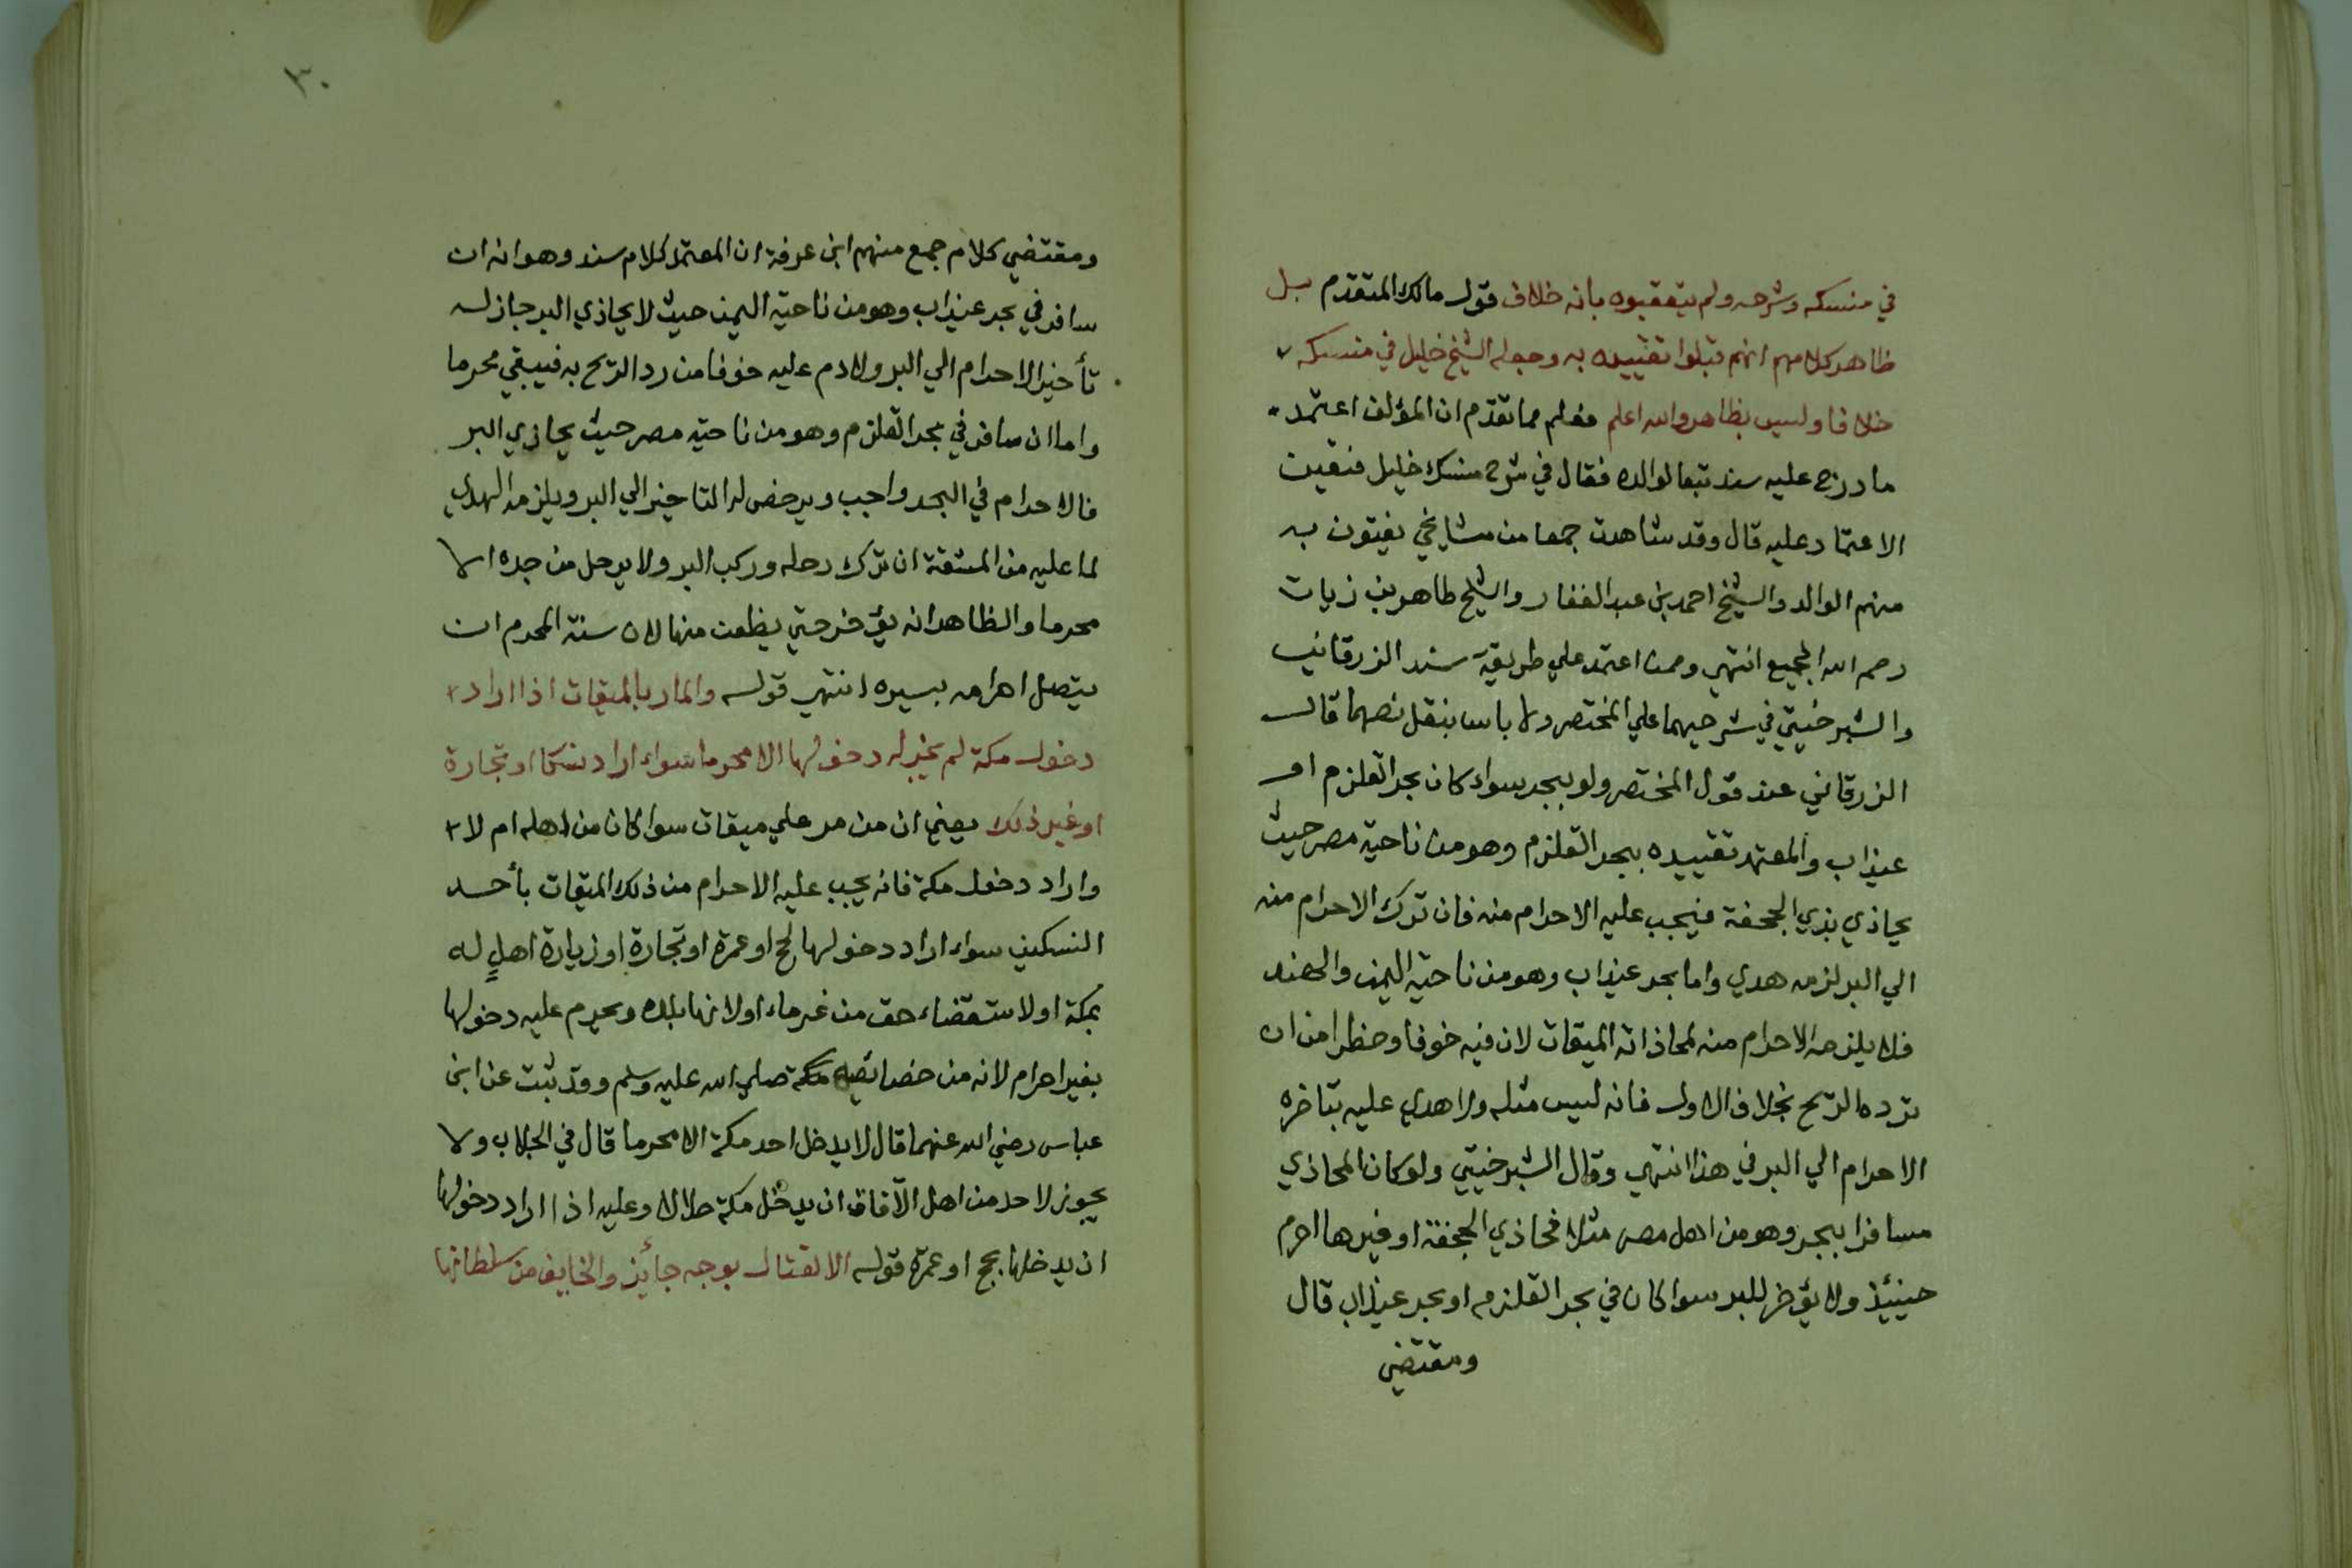 في منسكه وشرحه ولم يتعقبوه بانه خلاف قول مالك المتقدم بل
ظاهر كلامهم انهم قبلوا تقييده به وجعله الشيخ خليل في منسكه
خلافا وليس بظاهر والله اعلم فعلم مما تقدم ان المؤلف اعتمد
ما درج عليه سند تبعا لوالده فقال في شرح منسك خليل فتعين
الاعتماد عليه قال وقد شاهدت جمعا من مشايخي يفتون به
منهم الوالد والشيخ احمد بن عبد الغفار والشيخ طاهر بن زيان
رحم الله الجميع انتهى وممن اعتمد علي طريقة سند الزرقاني
والشبرخيتي في شرحيهما علي المختصر ولا باس بنقل نصهما قال
الزرقاني عند قول المختصر ولو ببحر سواء كان بحر القلزم او
عيذاب والمعتمد تقييده ببحر القلزم وهو من ناحية مصر حيث
يحاذي بذي الجحفة فيجب عليه الاحرام منه فان ترك الاحرام منه
الي البر لزمه هدي واما بحر عيذاب وهو من ناحية اليمن والهند
فلا يلزمه الاحرام منه لمحاذاته الميقات لان فيه خوفا وخطرا من ان
ترده الريح بخلاف الاول فانه ليس مثله ولا هدي عليه بتاخره
الاحرام الي البر في هذا انتهي وقال الشبرخيتي ولو كان المحاذي
مسافرا ببحر وهو من اهل مصر مثلا فحاذي الجحفة او غيرها احرم
حينئذ ولا يؤخر للبر سوا كان في بحر القلزم او بحر عيذاب قال
ومقتضي
٣٠
ومقتضي كلام جمع منهم ابن عرفة ان المعتمد كلام سند وهو انه ان
سافر في بحر عيذاب وهو من ناحية اليمن حيث لا يحاذي البر جاز له
تأخير الاحرام الي البر ولا دم عليه خوفا من رد الريح به فيبقي محرما
واما ان سافر في بحر القلزم وهو من ناحية مصر حيث يحاذي البر
فالاحرام في البحر واجب ويرخص له التاخير الي البر ويلزمه الهدي
لما عليه من المشقة ان ترك رحله وركب البر ولا يرحل من جده الا
محرما والظاهر انه يؤخر حتي يظعن منها لان سنة المحرم ان
يتصل اهرامه بسيره انتهي قوله والمار بالميقات اذا اراد
دخول مكة لم يجز له دخولها الا محرما سواء اراد نسكا او تجارة
او غير ذلك يعني ان من مر علي ميقات سوا كان من اهله ام لا
واراد دخول مكة فانه يجب عليه الاحرام من ذلك الميقات بأحد
النسكين سواء اراد دخولها لحج او عمرة او تجارة او زيارة اهل له
بمكة او لاستقضاء حق من غرماء او لانها بلده ويحرم عليه دخولها
بغير اهرام لانه من خصائصه مكة صلي الله عليه وسلم وقد ثبت عن ابن
عباس رضي الله عنهما قال لا يدخل احد مكة الا محرما قال في الجلاب ولا
يجوز لاحد من اهل الآفاق ان يدخل مكة حلالا وعليه اذا اراد دخولها
ان يدخلها بحج او عمرة قوله الا لقتال بوجه جائز والخايف من سلطانها